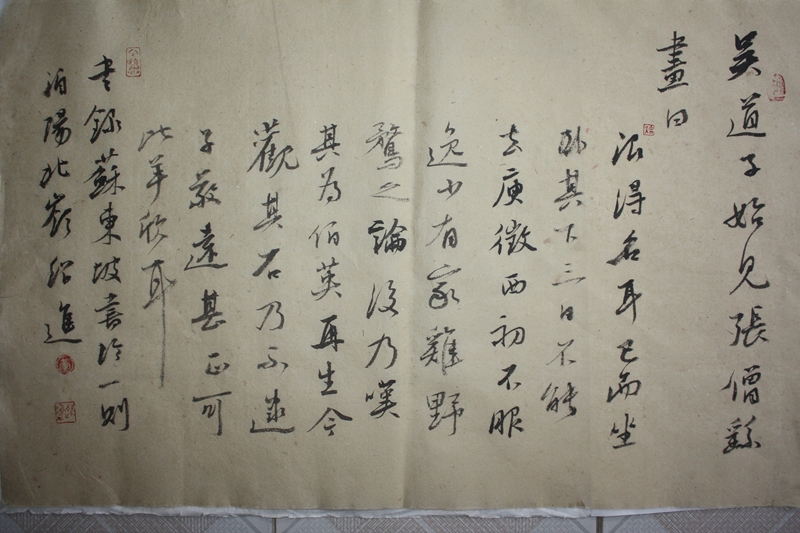 吴道子始見張僧繇
畫曰
浪得名耳已而坐
卧其下三日不能
去庾徵西初不服
逸少有家雞野
鶩之論後乃嘆
其為伯英再生今
觀其石乃不逮
子敬遠甚正可
比羊欣耳
书錄蘇東坡書論一則
陽北進